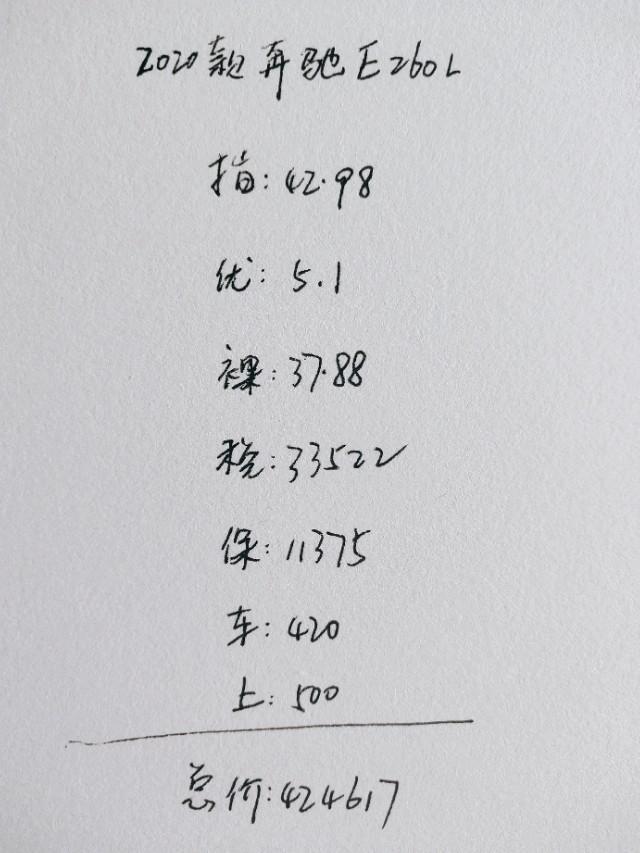 2020款奔驰E260L
指:42.98
优:5.1
裸:37.88
税:33522
保:11375
车:420
上:500
总价:424617